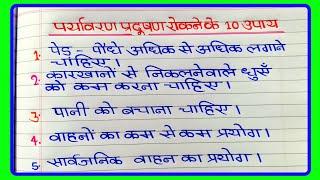 पर्यावरण प्रदूषण रोकने के 10 उपाय
1. पेड़ - पौधे अधिक से अधिक लगाने
चाहिए ।
2. कारखानों से निकलनेवाले धुएँ
को कम करना चाहिए ।
3. पानी को बचाना चाहिए ।
4. वाहनों का कम से कम प्रयोग ।
5. सार्वजनिक वाहन का प्रयोग ।